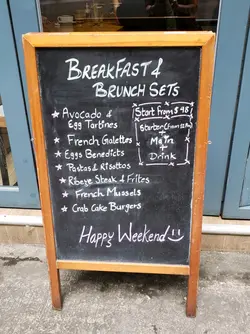 BREAKFAST &
BRUNCH SETS
★ Avocado &
Egg Tartines
★ French Galettes
★ Eggs Benedicts
★ Pastas & Risottos
★ Ribeye Steak & Frites
★ French Mussels
★ Crab Cake Burgers
Start From $98
Starter
+
Main
+
Drink
Happy Weekend